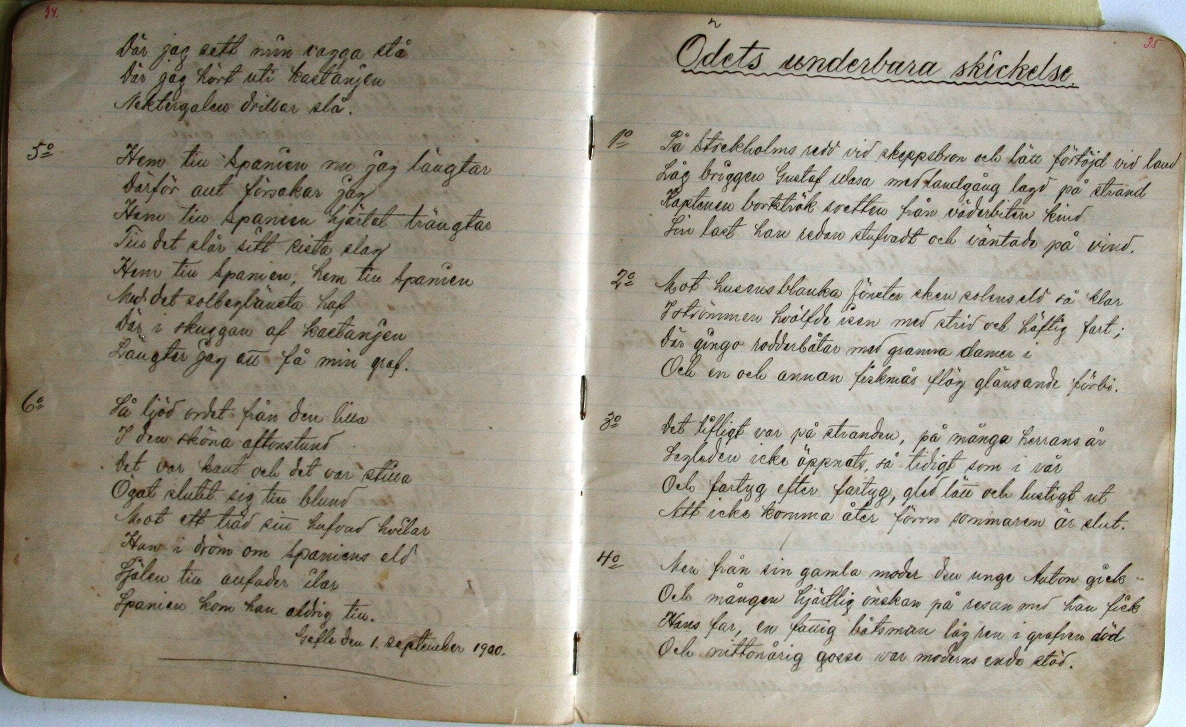 34.
Där jag sett min vagga stå
Där jag hört uti kastanjen
Nektergalen drillar slå.
5º
Hem till Spanien nu jag längtar
Därför allt försakar jag
Hem till Spanien hjertat trängtar
Till det slår sitt sista slag
Hem till Spanien, hem till Spanien
Med det solbeglänsta haf
Där i skuggan af kastanjen
Längtar jag att få min graf.
6º
Så ljöd ordet från den lilla
I den sköna aftonstund
Det var kallt och det var stilla
Ögat slutit sig till blund
Mot ett träd sitt hufvud hvilar
Han i dröm om Spaniens eld
Själen till anfader ilar
Spanien kom han aldrig till.
Gefle den 1. september 1900.
35
Ödets underbara skickelse.
1º
På Stockholms redd vid skeppsbron och lätt förtöjd vid land
Låg briggen Gustaf Wasa med landgång lagd på strand
Kaptenen bortströk svetten från väderbiten kind
Sin last han redan stufvadt och väntade på vind.
2º
Mot husens blanka fönster sken solens eld så klar
I strömmen hvälfde isen med strid och häftig fart;
Där gingo rodderbåtar med granna damer i
Och en och annan fiskmås flög glänsande förbi.
3º
Det lifligt var på stranden, på många herrans år
Segleden icke öppnats, så tidigt som i vår
Och fartyg efter fartyg, gled lätt och lustigt ut
Att icke komma åter förrn sommaren är slut.
4º
Men från sin gamla moder den unge Anton gick
Och mången hjärtlig önskan på resan med han fick
Hans far, en fattig båtsman låg ren i grafven död
Och nittonårig gosse var moderns enda stöd.